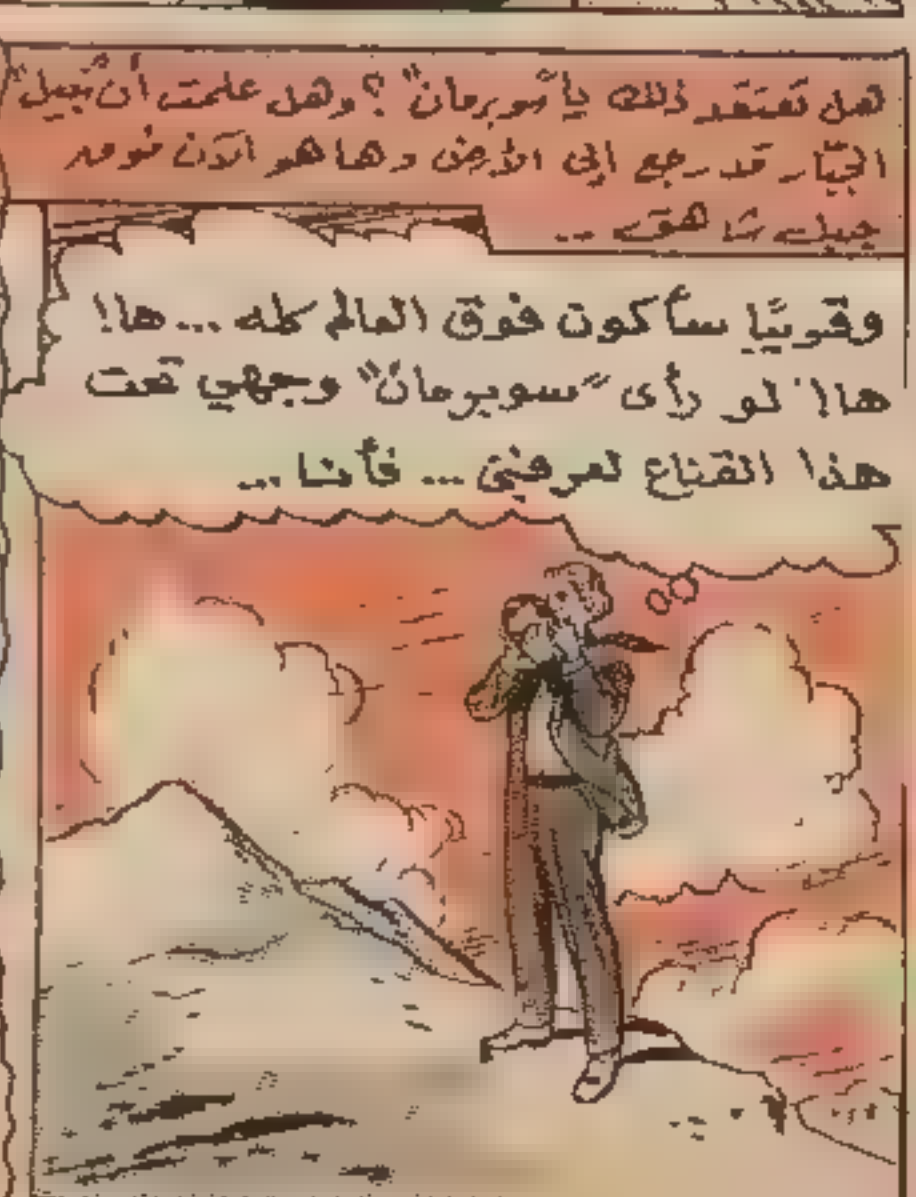 هل تعتقد ذلك يا "سوبرمان"؟ وهل علمت أن "نبيل"
الجبّار قد رجع الى الأرض وها هو الآن فوق
جبل شاهق ...
وقريبًا سأكون فوق العالم كله ... ها!
ها! لو رأى "سوبرمان" وجهي تحت
هذا القناع لعرفني ... فأنا ...